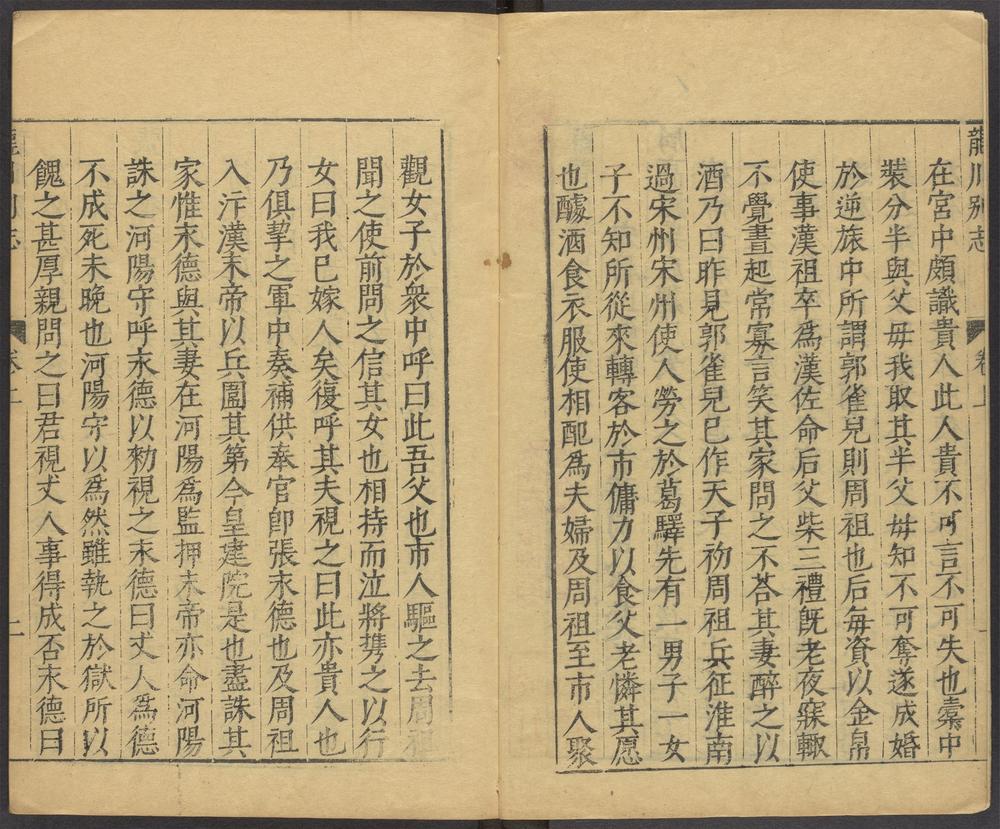 龍川别志
卷上
在宮中頗識貴人此人貴不可言不可失也橐中
裝分半與父母我取其半父母知不可奪遂成婚
於逆旅中所謂郭雀兒則周祖也后毎資以金帛
使事漢祖卒爲漢佐命后父柴三禮旣老夜寐輙
不覺晝起常寡言笑其家問之不荅其妻醉之以
酒乃曰昨見郭雀兒已作天子初周祖兵征淮南
過宋州宋州使人勞之於葛驛先有一男子一女
子不知所從來轉客於市傭力以食父老憐其愿
也醵酒食衣服使相配爲夫婦及周祖至市人聚
觀女子於衆中呼曰此吾父也市人驅之去周祖
聞之使前問之信其女也相持而泣將擕之以行
女曰我已嫁人矣復呼其夫視之曰此亦貴人也
乃俱挈之軍中奏補供奉官即張末德也及周祖
入汴漢末帝以兵圍其第今皇建院是也盡誅其
家惟末德與其妻在河陽爲監押末帝亦命河陽
誅之河陽守呼末德以勑視之末德曰丈人爲德
不成死未晚也河陽守以爲然雖執之於獄所以
餽之甚厚親問之曰君視丈人事得成否末德曰
卷上
二